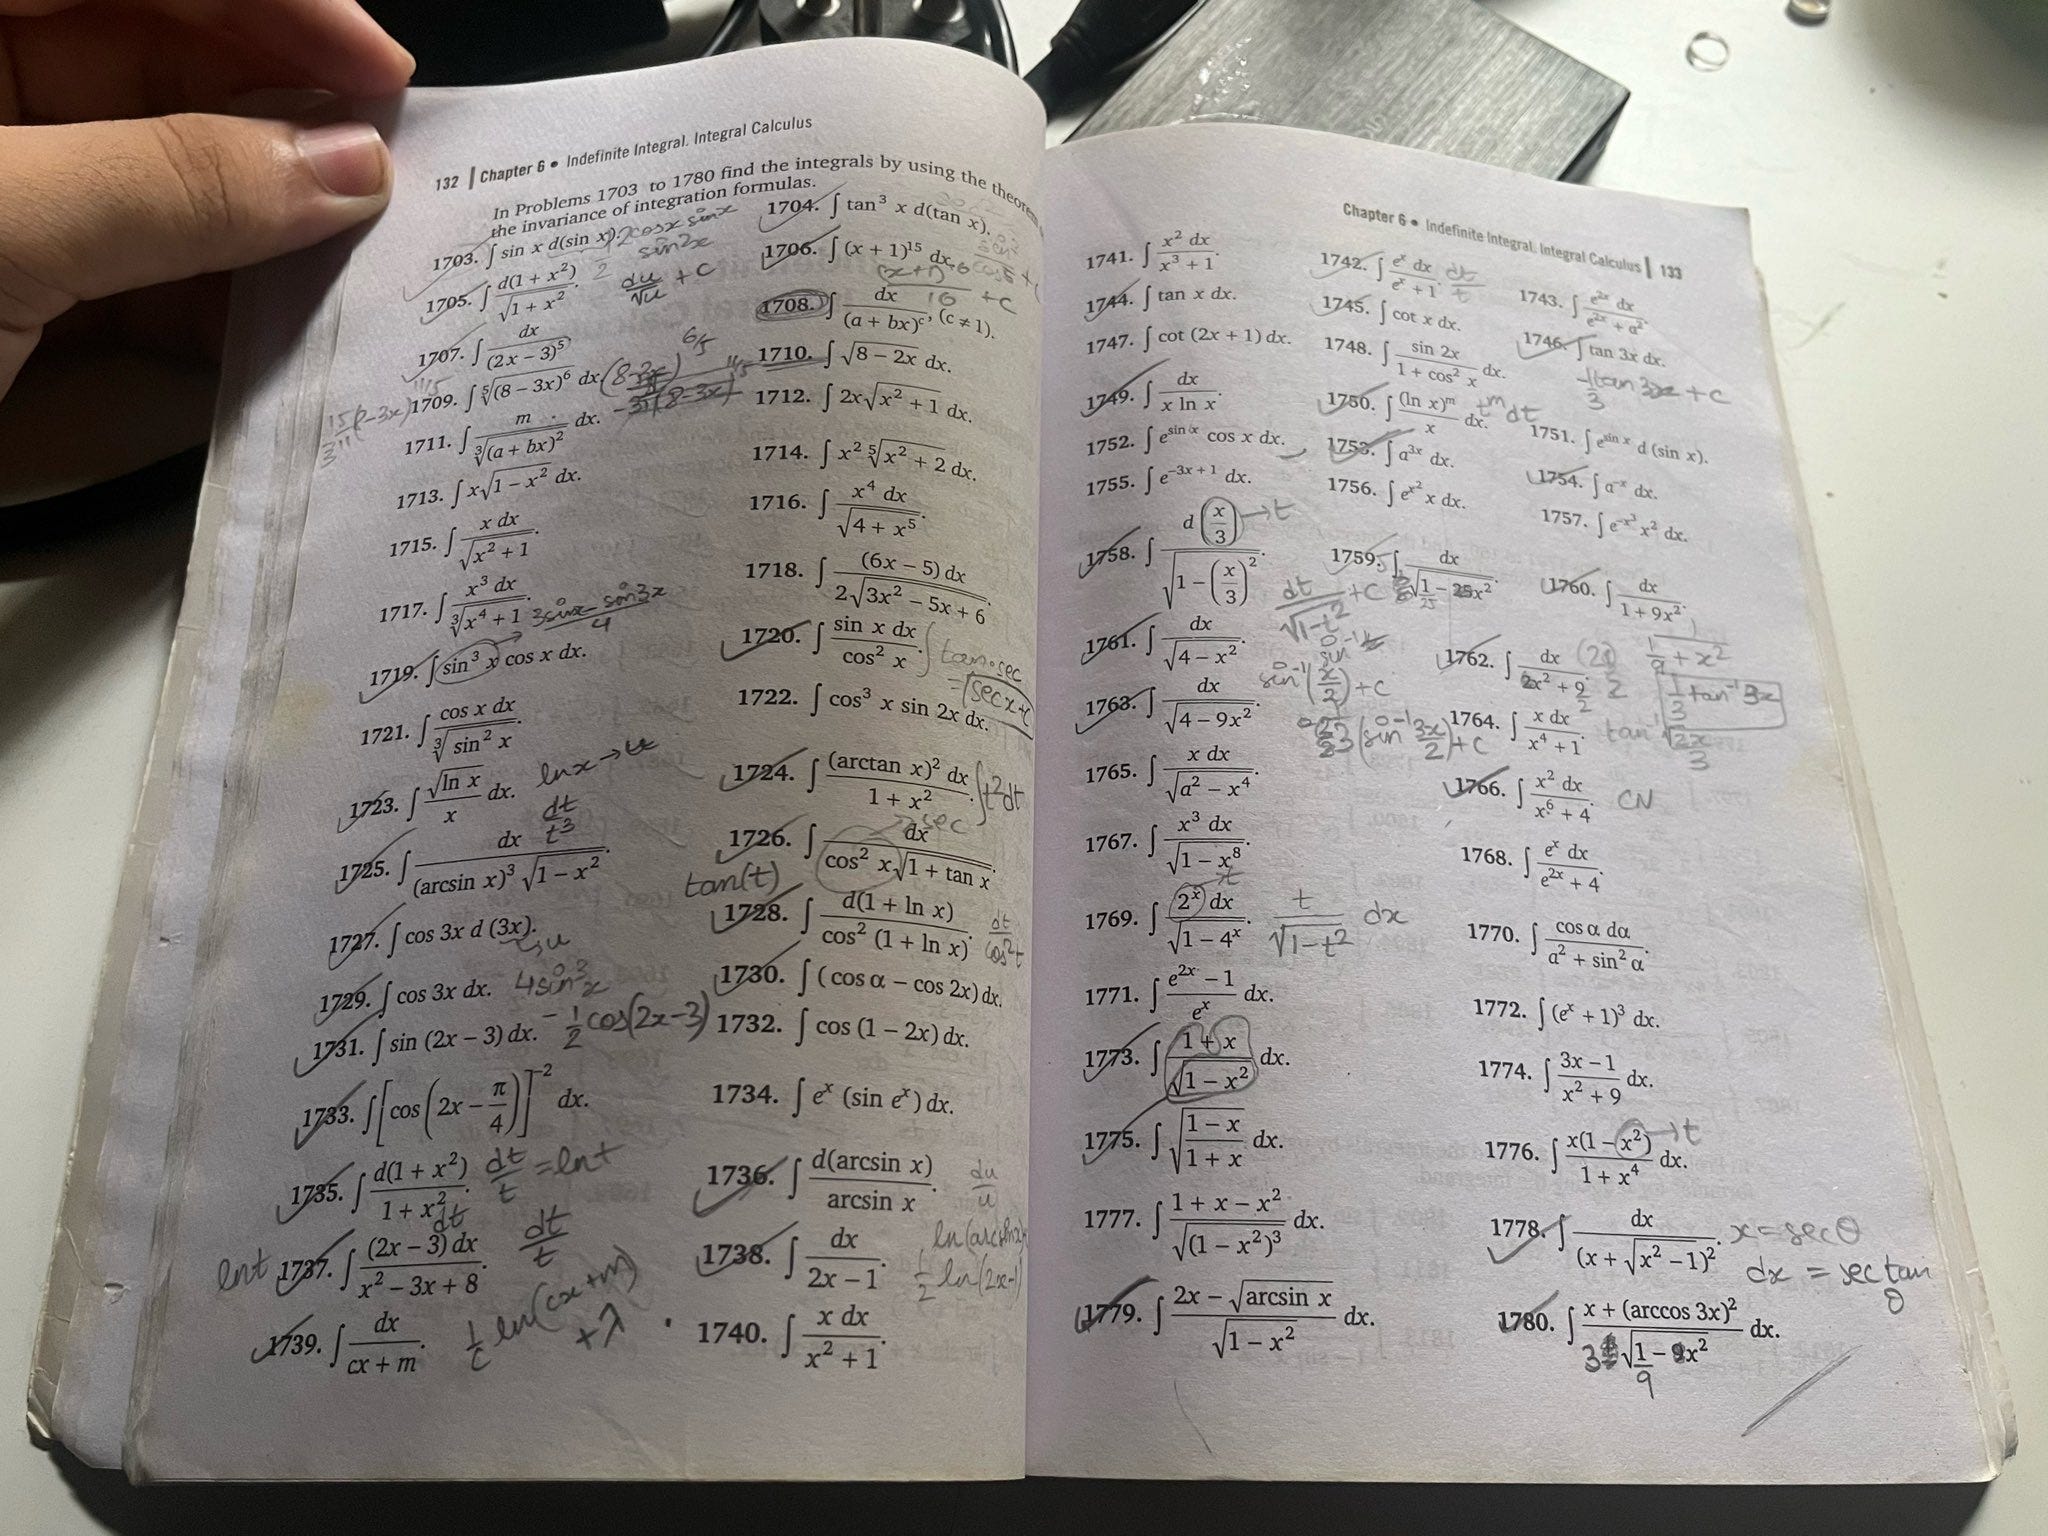 132 | Chapter 6 • Indefinite Integral. Integral Calculus
In Problems 1703 to 1780 find the integrals by using the theorem
the invariance of integration formulas.
1703. ∫ sin x d(sin x).
1704. ∫ tan³ x d(tan x).
1705. ∫ d(1 + x²) / √(1 + x²). du/√u + c
1706. ∫ (x + 1)¹⁵ dx. (x+1)/16 + c
1707. ∫ dx / (2x − 3)⁵.
1708. ∫ dx / (a + bx)ᶜ, (c ≠ 1).
1709. ∫ ⁵√(8 − 3x)⁶ dx.
1710. ∫ √(8 − 2x) dx.
1711. ∫ m / ³√(a + bx)² dx.
1712. ∫ 2x√(x² + 1) dx.
1713. ∫ x√(1 − x²) dx.
1714. ∫ x² ⁵√(x² + 2) dx.
1715. ∫ x dx / √(x² + 1).
1716. ∫ x⁴ dx / √(4 + x⁵).
1717. ∫ x³ dx / ³√(x⁴ + 1).
1718. ∫ (6x − 5) dx / 2√(3x² − 5x + 6).
1719. ∫ sin³ x cos x dx. → (3sinx − sin3x)/4
1720. ∫ sin x dx / cos² x. ∫ tan·sec = sec x + c
1721. ∫ cos x dx / ³√(sin² x).
1722. ∫ cos³ x sin 2x dx.
1723. ∫ √(ln x) / x dx. ln x → u
1724. ∫ (arctan x)² dx / (1 + x²). ∫t²dt
1725. ∫ dx / (arcsin x)³ √(1 − x²). dt/t³
1726. ∫ dx / cos² x√(1 + tan x). → sec
1727. ∫ cos 3x d (3x). ↳ u
1728. ∫ d(1 + ln x) / cos² (1 + ln x). tan(t) dt/cos²t
1729. ∫ cos 3x dx. 4sin³x
1730. ∫ (cos α − cos 2x) dx.
1731. ∫ sin (2x − 3) dx. −1/2 cos(2x−3)
1732. ∫ cos (1 − 2x) dx.
1733. ∫ [cos (2x − π/4)]⁻² dx.
1734. ∫ eˣ (sin eˣ) dx.
1735. ∫ d(1 + x²) / (1 + x²). dt/t = ln t
1736. ∫ d(arcsin x) / arcsin x. du/u
1737. ∫ (2x − 3) dx / (x² − 3x + 8). dt dt/t lnt
1738. ∫ dx / (2x − 1). 1/2 ln(2x−1)
1739. ∫ dx / (cx + m). 1/c ln(cx+m) + λ
1740. ∫ x dx / (x² + 1).
Chapter 6 • Indefinite Integral. Integral Calculus | 133
1741. ∫ x² dx / (x³ + 1).
1742. ∫ eˣ dx / (eˣ + 1). dt/t
1743. ∫ e²ˣ dx / (e²ˣ + a²).
1744. ∫ tan x dx.
1745. ∫ cot x dx.
1746. ∫ tan 3x dx.
1747. ∫ cot (2x + 1) dx.
1748. ∫ sin 2x / (1 + cos² x) dx.
1749. ∫ dx / (x ln x).
1750. ∫ (ln x)ᵐ / x dx. tᵐ dt
1751. ∫ e^(sin x) d (sin x).
1752. ∫ e^(sin x) cos x dx.
1753. ∫ a³ˣ dx.
1754. ∫ a⁻ˣ dx.
1755. ∫ e^(−3x + 1) dx.
1756. ∫ e^(x²) x dx.
1757. ∫ e^(−x³) x² dx.
1758. ∫ d(x/3) / √(1 − (x/3)²). → t dt/√(1−t²) + c
1759. ∫ dx / √(1 − 25x²).
1760. ∫ dx / (1 + 9x²). 1/(1/9 + x²) 1/3 tan⁻¹ 3x
1761. ∫ dx / √(4 − x²). sin⁻¹(x/2) + c
1762. ∫ dx / (2x² + 9).
1763. ∫ dx / √(4 − 9x²). (sin⁻¹ 3x/2) + c
1764. ∫ x dx / (x⁴ + 1).
1765. ∫ x dx / √(a² − x⁴).
1766. ∫ x² dx / (x⁶ + 4). CN
1767. ∫ x³ dx / √(1 − x⁸).
1768. ∫ eˣ dx / (e²ˣ + 4).
1769. ∫ 2ˣ dx / √(1 − 4ˣ). t/√(1−t²) dx
1770. ∫ cos α dα / (a² + sin² α).
1771. ∫ (e²ˣ − 1) / eˣ dx.
1772. ∫ (eˣ + 1)³ dx.
1773. ∫ (1 + x) / √(1 − x²) dx.
1774. ∫ (3x − 1) / (x² + 9) dx.
1775. ∫ √((1 − x) / (1 + x)) dx.
1776. ∫ x(1 − x²) / (1 + x⁴) dx. → t
1777. ∫ (1 + x − x²) / √(1 − x²)³ dx.
1778. ∫ dx / (x + √(x² − 1))². x = secθ
dx = sec tan θ
1779. ∫ (2x − √(arcsin x)) / √(1 − x²) dx.
1780. ∫ (x + (arccos 3x)²) / √(1 − 9x²) dx.